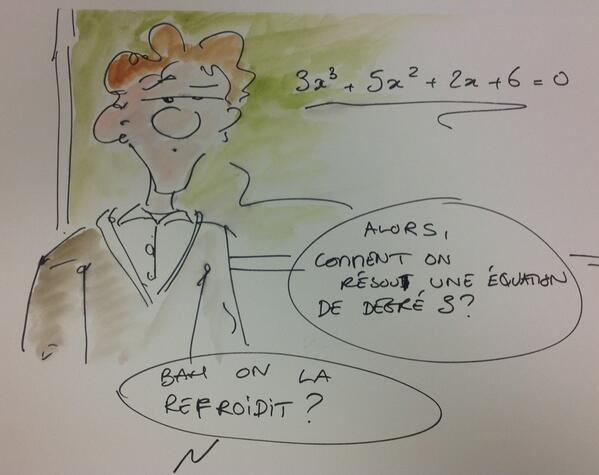 3x³ + 5x² + 2x + 6 = 0
ALORS,
COMMENT ON
RÉSOUT UNE ÉQUATION
DE DEGRÉ 3?
BAH ON LA
REFROIDIT ?